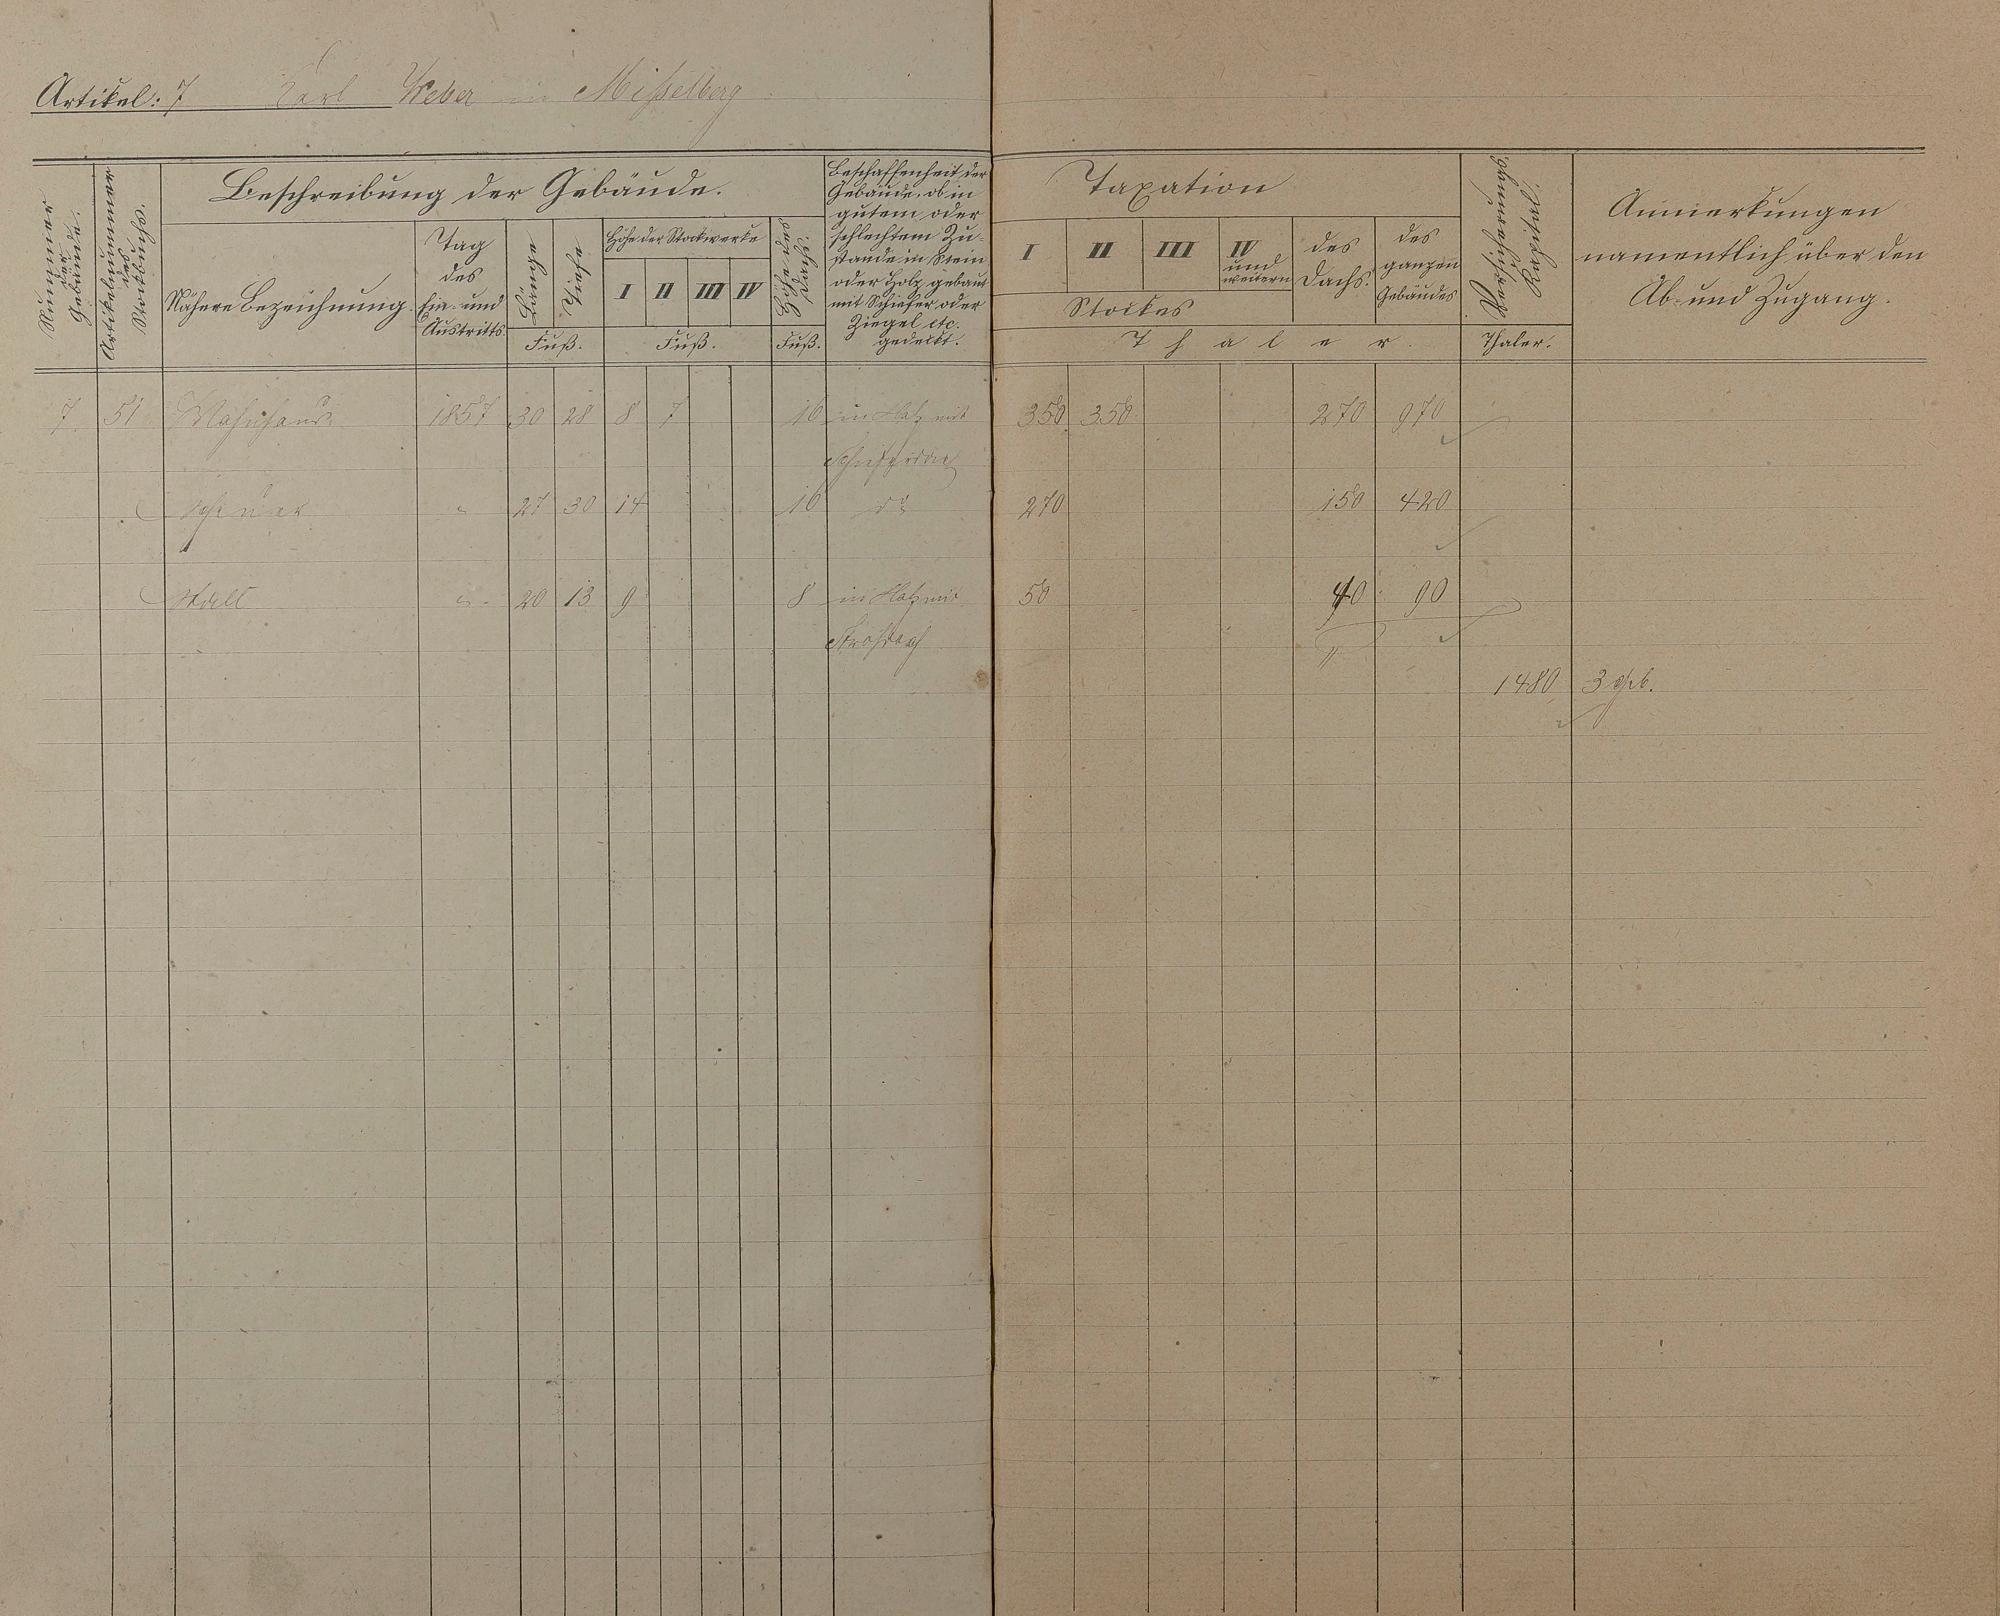 Artikel: 7 Karl Weber in Misselberg
Nummer der Gebäude.
Artikelnummer des Stockbuchs.
Beschreibung der Gebäude.
Nähere Bezeichnung.
Tag des Ein- und Austritts
Länge
Tiefe
Fuß.
Höhe der Stockwerke
I II III IV
Fuß.
Höhe des Dachs.
Fuß.
Beschaffenheit der
Gebäude, ob in
gutem oder
schlechtem Zu-
stande in Stein
oder Holz gebaut
mit Schiefer oder
Ziegel etc.
gedeckt.
Taxation
I II III IV und weitern
Stockes
des Dachs.
des ganzen Gebäudes
Thaler.
Versicherungs Kapital.
Thaler.
Anmerkungen
namentlich über den
Ab- und Zugang.
7. 51 Wohnhaus. 1857 30 28 8 7 16 in Holz mit 350 350 270 970
Schieferdach
Scheuer " 27 30 14 16 do 270 150 420
Stall " 20 13 9 8 in Holz mit 50 40 90
Strohdach "
1480 3 Geb.